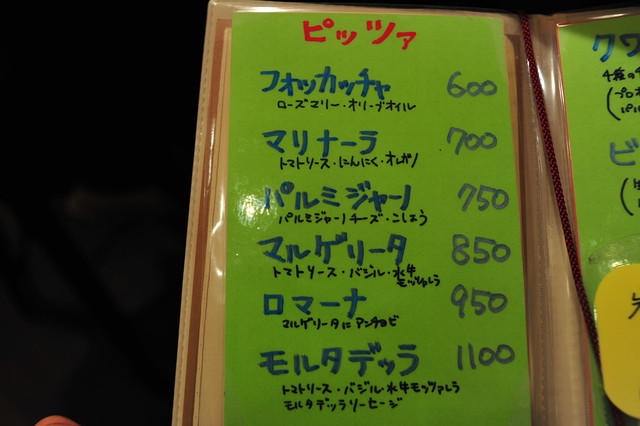 ピッツァ
フォカッチャ 600
ローズマリー・オリーブオイル
マリナーラ 700
トマトソース・にんにく・オレガノ
パルミジャーノ 750
パルミジャーノチーズ・こしょう
マルゲリータ 850
トマトソース・バジル・水牛
モッツァレラ
ロマーナ 950
マルゲリータにアンチョビ
モルタデッラ 1100
トマトソース・バジル・水牛モッツァレラ
モルタデッラソーセージ
クワ
4種の
(プロ
パル
ビ